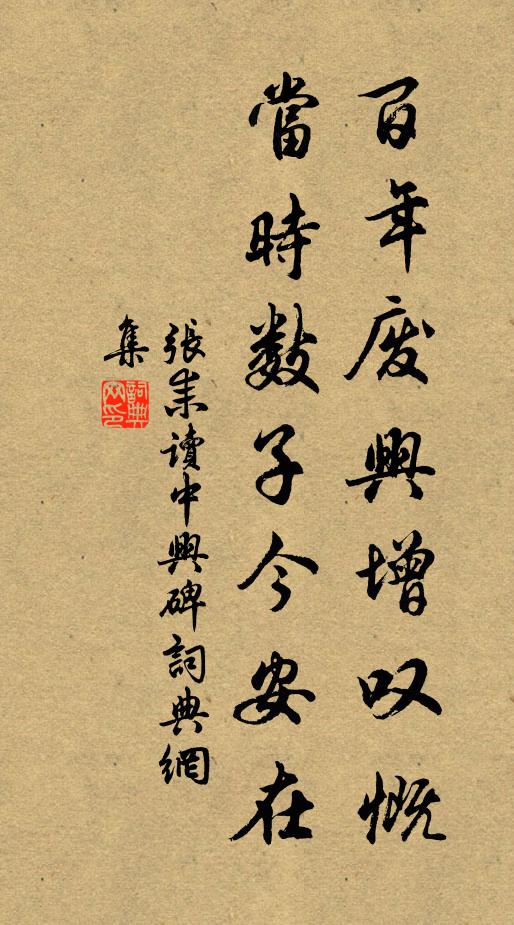 百年废興增叹慨
當時数子今安在
張耒讀中興碑詞典網
集
詞典網印